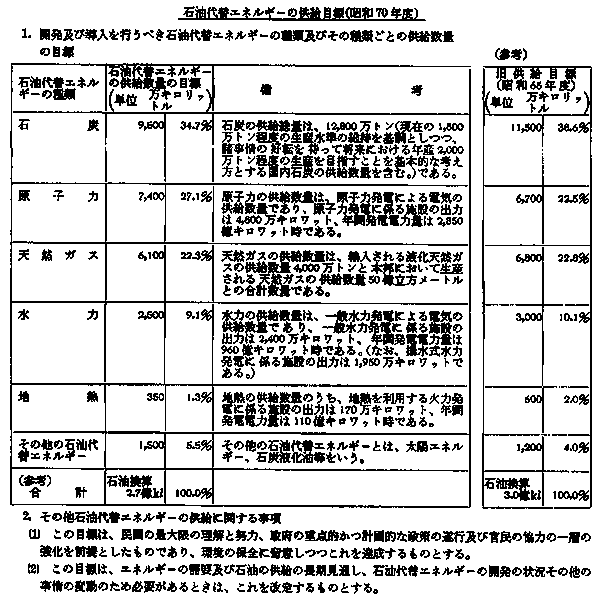 石油代替エネルギーの供給目標(昭和70年度)
1. 開発及び導入を行うべき石油代替エネルギーの種類及びその種類ごとの供給数量
の目標
(参考)
石油代替エネル
ギーの種類
石油代替エネルギー
の供給数量の目標
(単位 万キロリッ
トル)
備 考
旧供給目標
(昭和65年度)
(単位 万キロリッ
トル)
石 炭
9,600 34.7%
石炭の供給総量は、12,800万トン(現在の1,800
万トン程度の生産水準の維持を基調としつつ、
諸事情の好転を待って将来における年産2,000
万トン程度の生産を目指すことを基本的な考え
方とする国内石炭の供給数量を含む。)である。
11,500 38.6%
原 子 力
7,400 27.1%
原子力の供給数量は、原子力発電による電気の
供給数量であり、原子力発電に係る施設の出力
は4,800万キロワット、年間発電電力量は2,850
億キロワット時である。
6,700 22.5%
天 然 ガ ス
6,100 22.3%
天然ガスの供給数量は、輸入される液化天然ガ
スの供給数量4,000万トンと本邦において生産
される天然ガスの供給数量50億立方メートル
との合計数量である。
6,800 22.8%
水 力
2,500 9.1%
水力の供給数量は、一般水力発電による電気の
供給数量であり、一般水力発電に係る施設の
出力は2,400万キロワット、年間発電電力量は
960億キロワット時である。(なお、揚水式水力
発電に係る施設の出力は1,950万キロワットで
ある。)
3,000 10.1%
地 熱
350 1.3%
地熱の供給数量のうち、地熱を利用する火力発
電に係る施設の出力は170万キロワット、年間
発電電力量は110億キロワット時である。
600 2.0%
その他の石油代
替エネルギー
1,500 5.5%
その他の石油代替エネルギーとは、太陽エネル
ギー、石炭液化油等をいう。
1,200 4.0%
(参考)
合 計
石油換算
2.7億kl 100.0%
石油換算
3.0億kl 100.0%
2. その他石油代替エネルギーの供給に関する事項
(1) この目標は、民間の最大限の理解と努力、政府の重点的かつ計画的な政策の遂行及び官民の協力の一層の
強化を前提としたものであり、環境の保全に留意しつつこれを達成するものとする。
(2) この目標は、エネルギーの需要及び石油の供給の長期見通し、石油代替エネルギーの開発の状況その他の
事情の変動のため必要があるときは、これを改定するものとする。